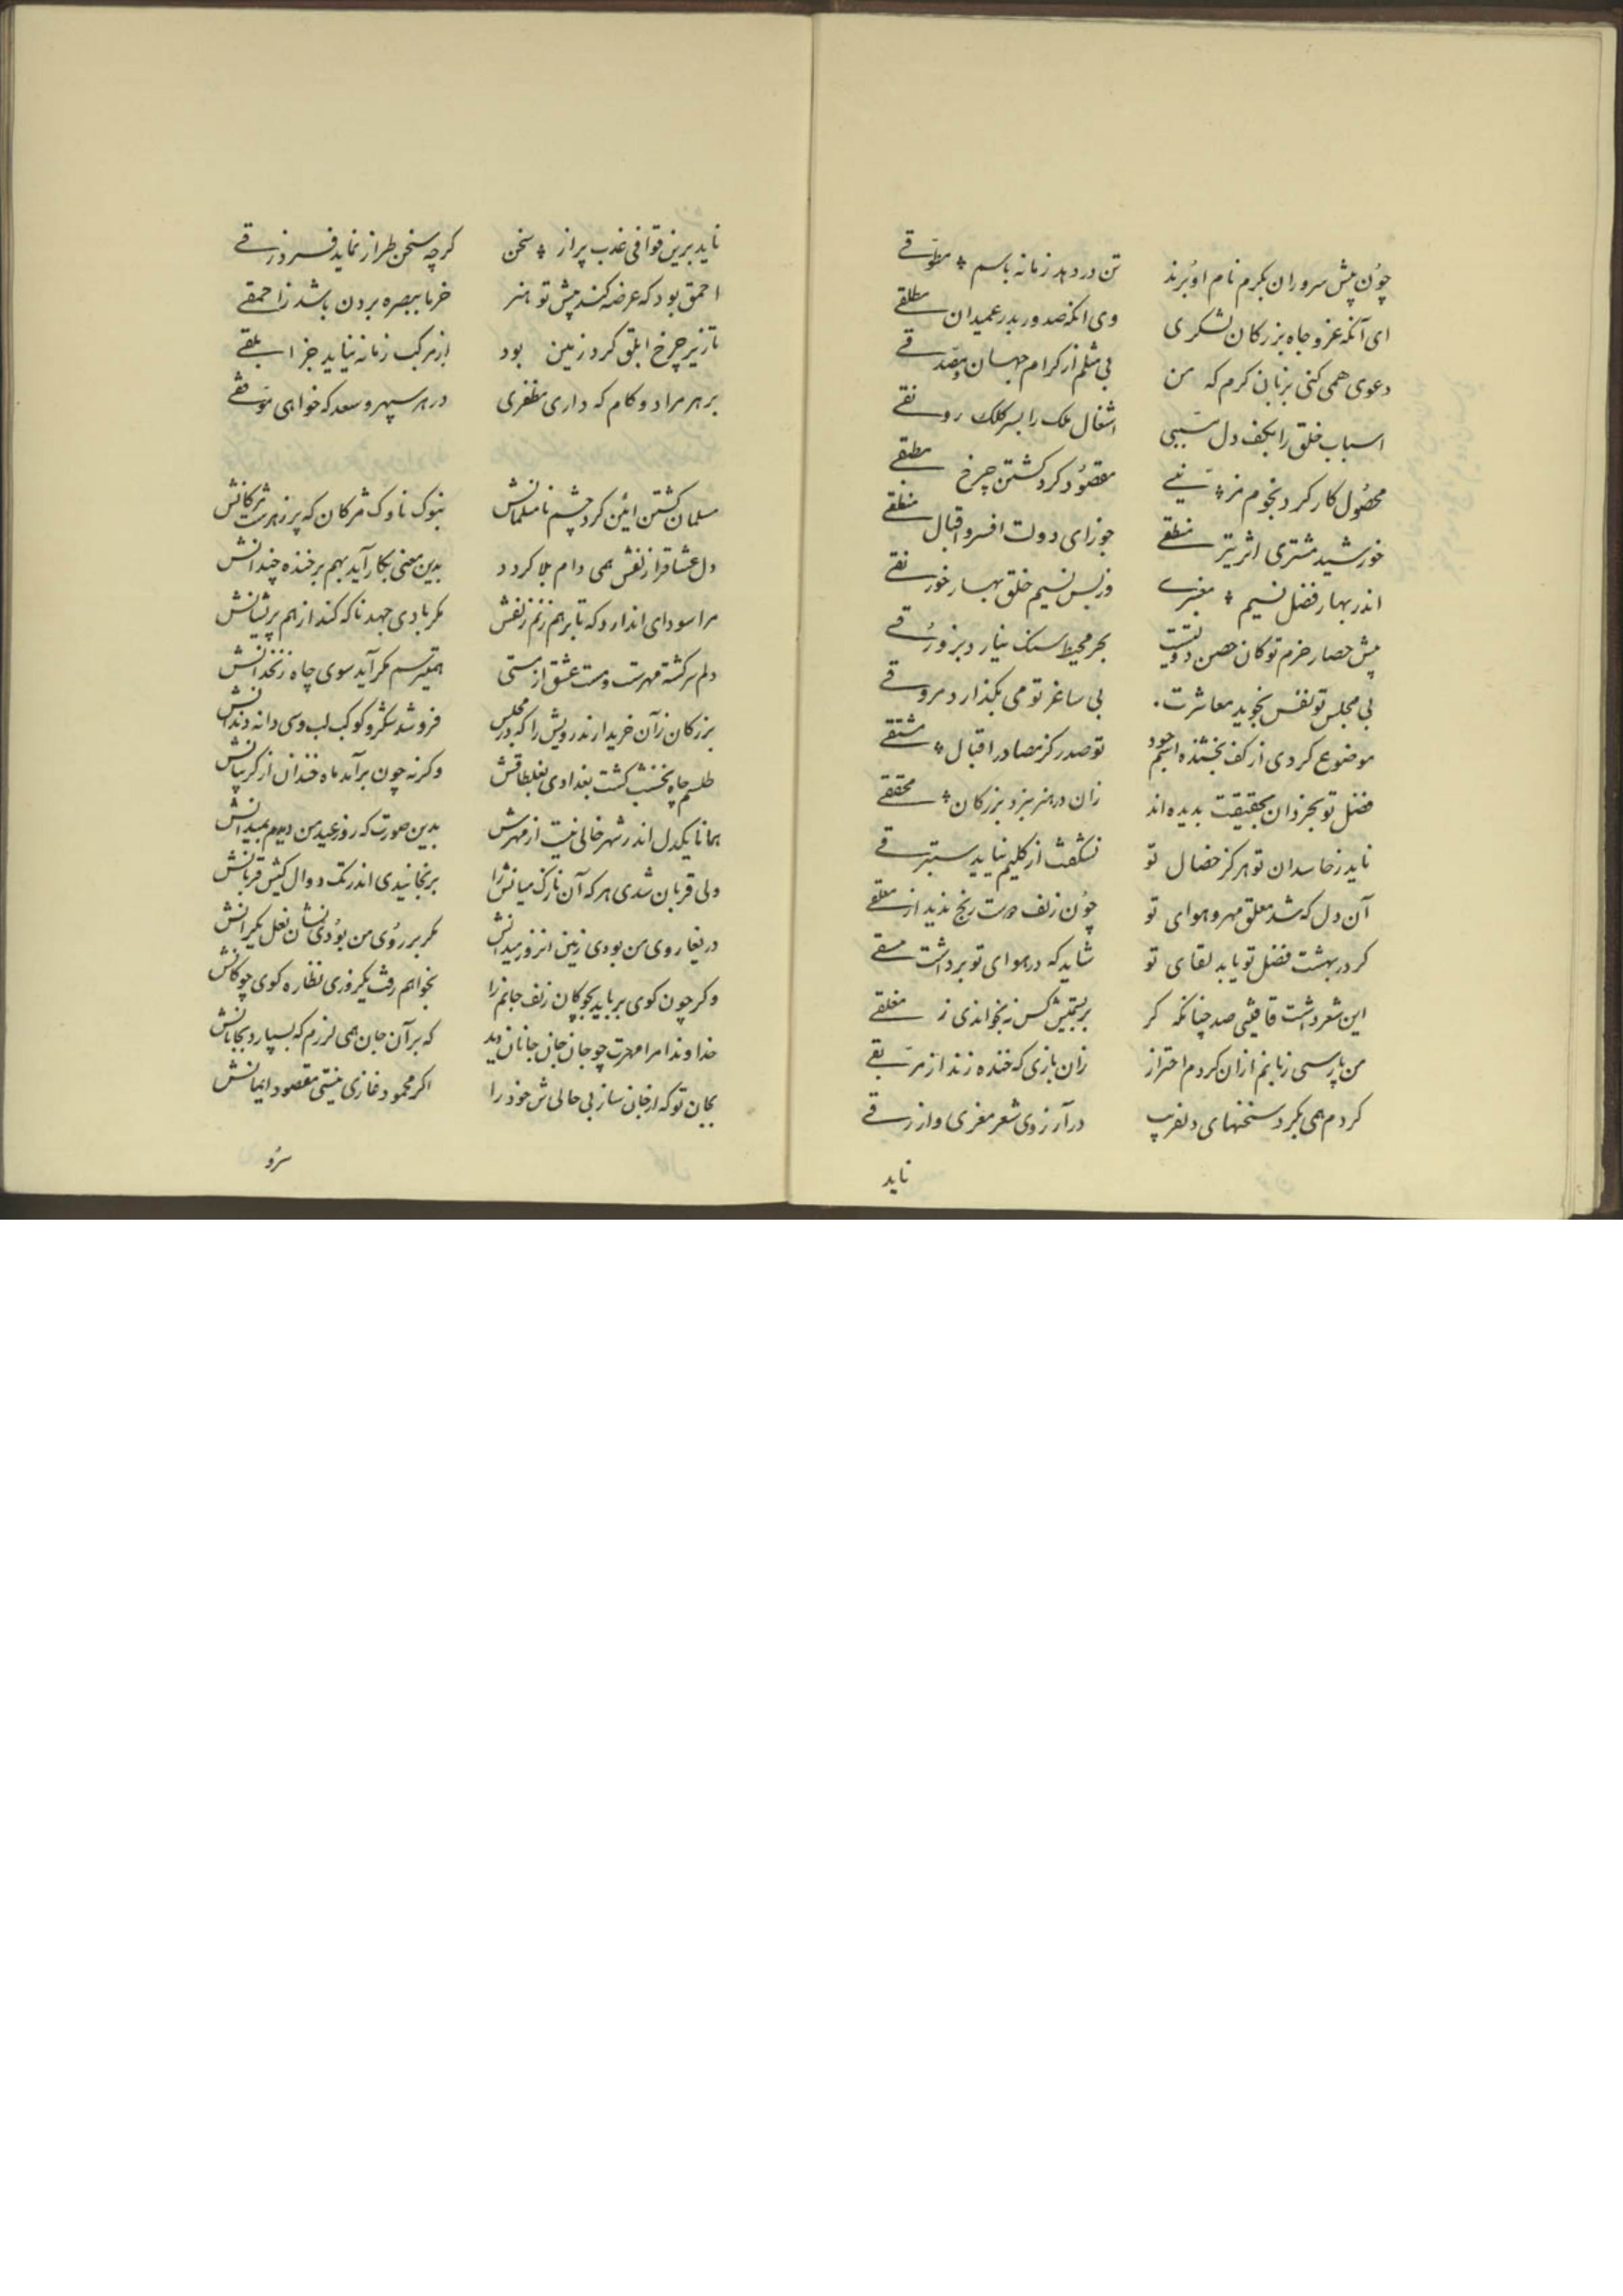 چون پیش سروران بکرم نام او برند تن در دهد زمانه باسم مطوقے
ای آنکه عز و جاه بزرکان لشکری وی آنکه صدور بدر عمیدان مطلقے
دعوی همی کنی بزبان کرم که من بی مثلم از کرام جهان و مصدقے
اسباب خلق را بکف دل مسببی اشغال ملک را بسر کلک رونقے
محصول کار کرد نجوم مزینے مقصود کرد کشتن چرخ مطبقے
خورشید مشتری اثر تیر منطقے جوزای دولت افسر و اقبال منطقے
اندر بهار فضل نسیم معنبرے وز بس نسیم خلق بهار خورنقے
پیش حصار حزم تو کان حصن دولتیت بحر محیط سنک نیارد بزورقے
بی مجلس تو نفس نجوید معاشرت بی ساغر تو می نکذارد مروقے
موضوع کردی از کف بخشنده اسم جود تو صدر کز مصادر اقبال مشتقے
فضل تو بخردان بحقیقت بدیده اند زان در هنر بنزد بزرکان محققے
ناید ز حاسدان تو هرکز خصال تو نشکفت از کلیم نیاید ستبرقے
آن دل که شد معلق مهر و هوای تو چون زلف دوست رنج ندید از معلقے
کر در بهشت فضل تو یابد لقای تو شاید که در هوای تو برداشت مسقے
این شعر داشت قافیتی صد چنانکه کر بر تیش کس نه بخواندی ز مغلقے
من پارسی زبانم ازان کردم احتراز زان بازی که خنده زند از مربقے
کردم همی بکرد سخنهای دلفریب در آرزوی شعر معزی و ازرقے
ناید
ناید برین قوافی عذب پر از سخن کرچه سخن طراز نماید فرزدقے
احمق بود که عرضه کند پیش تو هنر خرما ببصره بردن باشد ز احمقے
تا زیر چرخ ابلق کرد زمین بود از مرکب زمانه نیاید جز ابلقے
بر هر مراد و کام که داری مظفری در هر سپهر و سعد که خواهی موفقے
مسلمان کشتن آئین کرد چشم نامسلمانش بنوک ناوک مژکان که پر زهرست مژکانش
دل عشاق را زلفش همی دام بلا کردد بدین معنی بکار آید بهم بر خنده چندانش
مرا سودای اندارد که تا برهم زنم زلفش مکر بادی جهد ناکه کند از هم پریشانش
دلم سرکشته مهرست و مست عشق از مستی همیترسم مکر آید سوی چاه زنخدانش
بزرکان زآن خریدارند رویش را که در مجلس فروشد شکر و کوکب لب وسی دانه دندانش
طلسم چاه نخشب کشت بغدادی بغلطاقش وکرنه چون برآمد ماه خندان از کریبانش
همانا یکدل اندر شهر خالی نیست از مهرش بدین صورت که روز عید من دیدم بمیدانش
ولی قربان شدی هر که آن نازک میانش را برنجانیدی اندر تک دوال کیش قربانش
دریغا روی من بودی زمین انروز میدانش مکر بر روی من بودی نشان نعل یکرانش
وکر چون کوی برباید بچوکان زلف جانم را بخواهم رفت یکروزی نظاره کوی چوکانش
خداوندا مرا مهرت چو جان جان جانان دید که بر آن جان همی لرزم که بسپارد بجانانش
بجان تو که از جان ساز بی حالی ش خود را اکر محمود غازی نیستی مقصود ایمانش
سرو